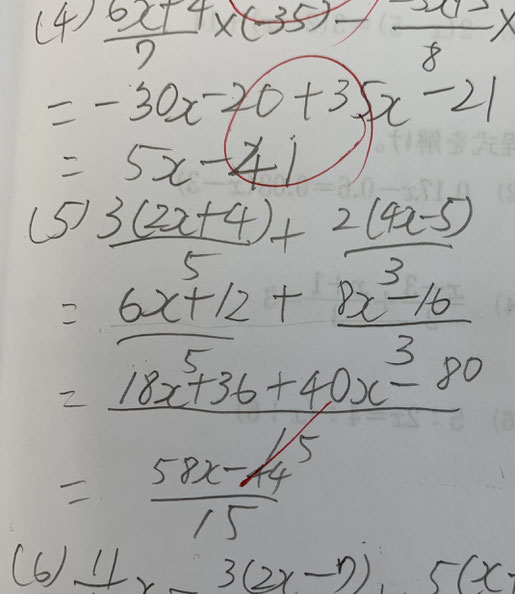 (4) (6x+4)/7 ×(-35) - /8 ×
= -30x-20+35x-21
= 5x-41
(5) 3(2x+4)/5 + 2(4x-5)/3
= (6x+12)/5 + (8x-16)/3
= (18x+36+40x-80)/15
= (58x-44)/15
(6) 11/ x - 3(2x-7), 5(x